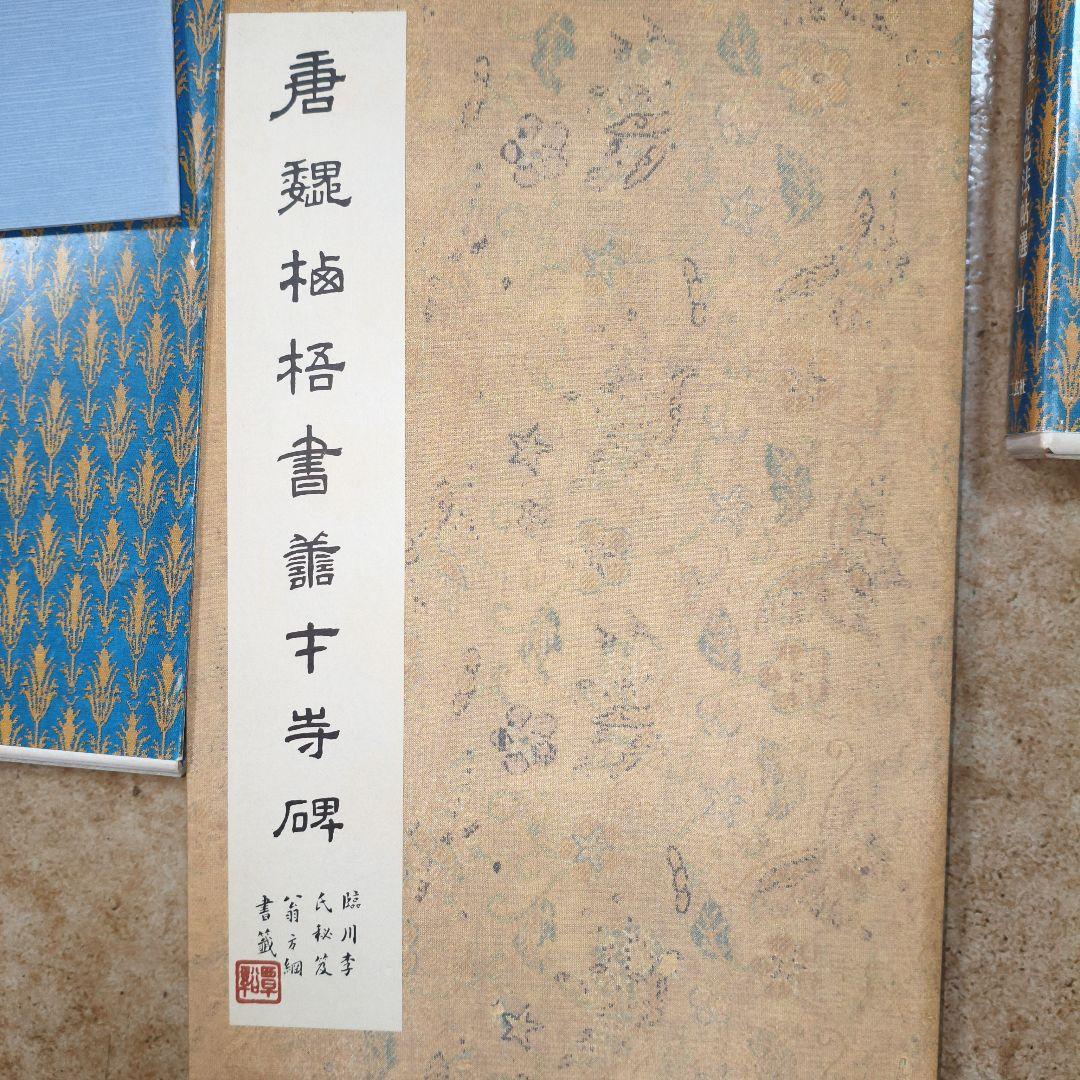 唐魏栖梧書善才寺碑
臨川李
氏秘笈
翁方綱
書籤
覃谿